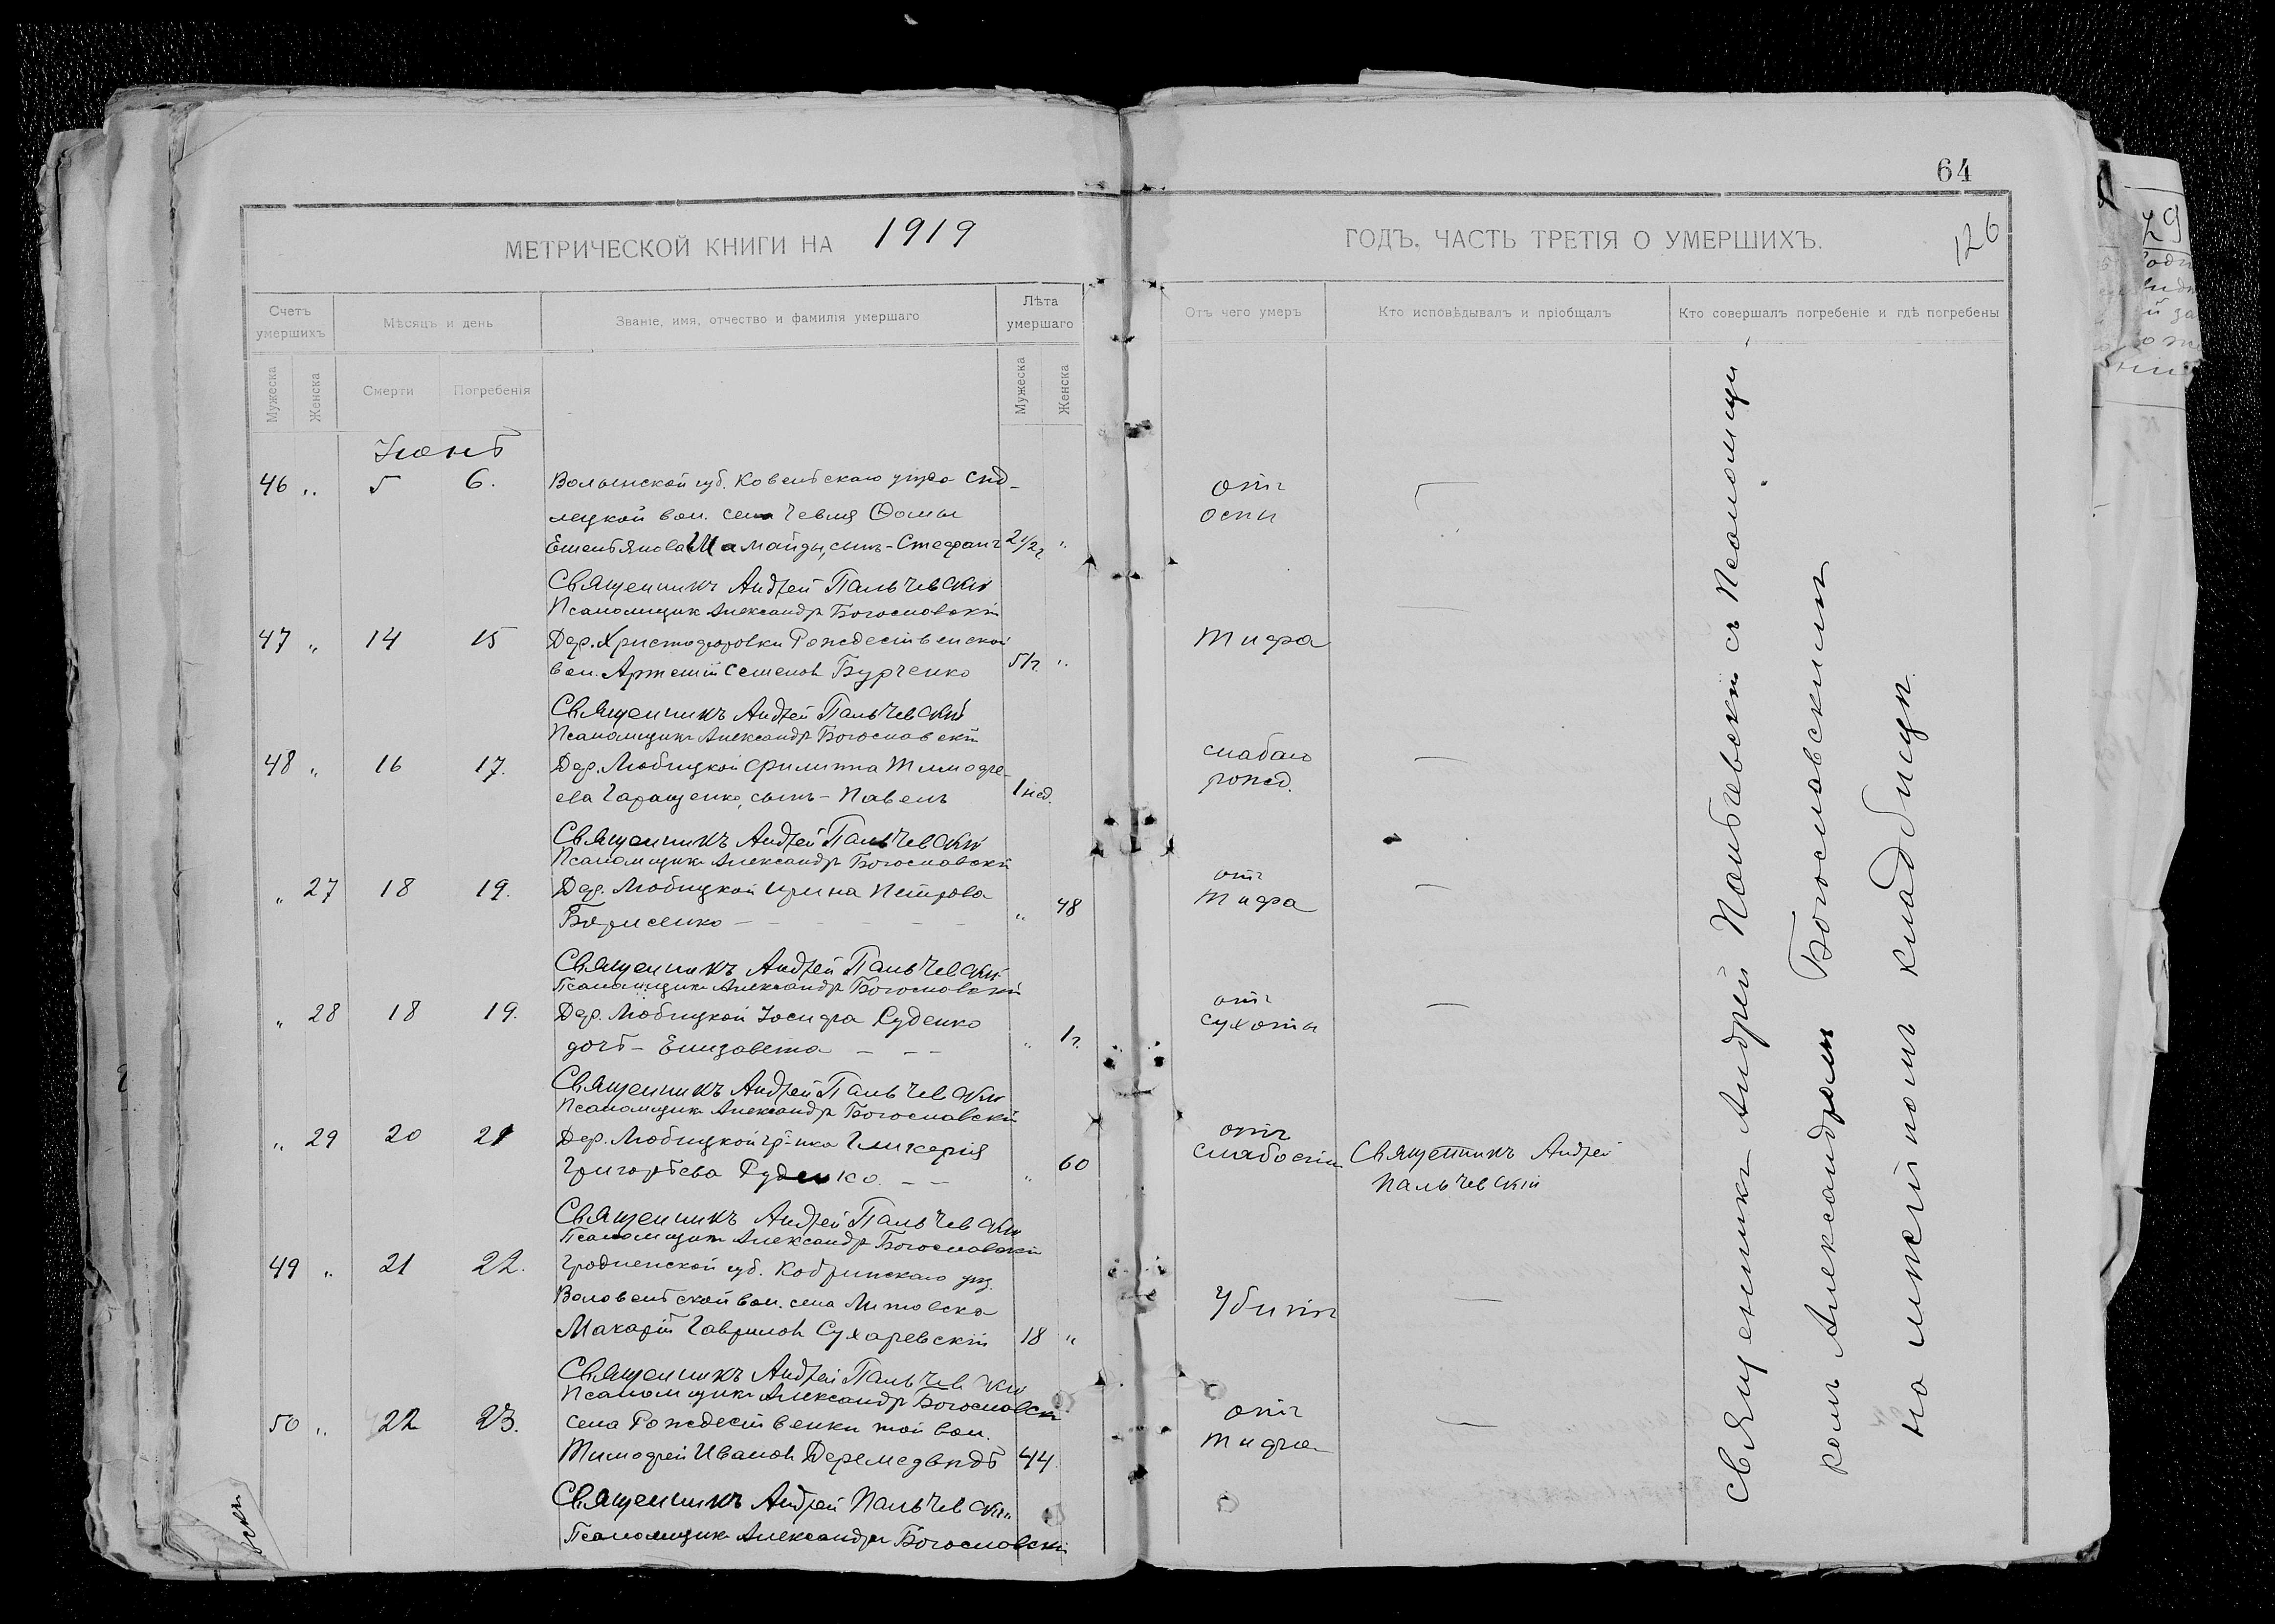 64
МЕТРИЧЕСКОЙ КНИГИ НА 1919
ГОДЪ. ЧАСТЬ ТРЕТІЯ О УМЕРШИХЪ.
126
Счетъ умершихъ
Мѣсяцъ и день
Званіе, имя, отчество и фамилія умершаго
Лѣта умершаго
Отъ чего умеръ
Кто исповѣдывалъ и пріобщалъ
Кто совершалъ погребеніе и гдѣ погребены
Мужеска
Женска
Смерти
Погребенія
Мужеска
Женска
Іюнь
46 " 5 6. Волынской губ. Ковельскаго уѣзда
вол. села Фомы
Шамайды, сынъ - Стефанъ 2 1/2 г "
отъ
оспы
Священникъ Андрей Пальчевскій
Псаломщикъ Александръ Богословскій
47 " 14 15 Дер. Христофоровки Рождественской
вол. Артемій Семеновъ Бурченко 5 г. "
тифа
Священникъ Андрей Пальчевскій
Псаломщикъ Александръ Богословскій
48 " 16 17. Дер. Любицкой Филиппа Тимофе-
ева Гаращенко, сынъ - Павелъ 1 нед.
слабаго
рожд.
Священникъ Андрей Пальчевскій
Псаломщикъ Александръ Богословскій
" 27 18 19. Дер. Любицкой Ирина Петрова
Борисенко - " 48
отъ
тифа
Священникъ Андрей Пальчевскій
Псаломщикъ Александръ Богословскій
" 28 18 19. Дер. Любицкой Іосифа Руденко
дочь - Елизавета - - - " 1 г.
отъ
сухоты
Священникъ Андрей Пальчевскій
Псаломщикъ Александръ Богословскій
" 29 20 21 Дер. Любицкой гр-нка Гликерія
Григорьева Руденко. - - " 60
отъ
слабости
Священникъ Андрей
Пальчевскій
Священникъ Андрей Пальчевскій
Псаломщикъ Александръ Богословскій
49 " 21 22. Гродненской губ. Кобринскаго уѣз.
вол. села Литовска
Макарій Гавриловъ Сухаревскій 18 "
Убитъ
Священникъ Андрей Пальчевскій
Псаломщикъ Александръ Богословскій
50 " 22 23. села Рождественки той вол.
Тимофей Ивановъ Деремедвѣдь 44.
отъ
тифа
Священникъ Андрей Пальчевскій
Псаломщикъ Александръ Богословскій
Священникъ Андрей Пальчевскій съ Псаломщи-
комъ Александромъ Богословскимъ
на кладбищѣ.